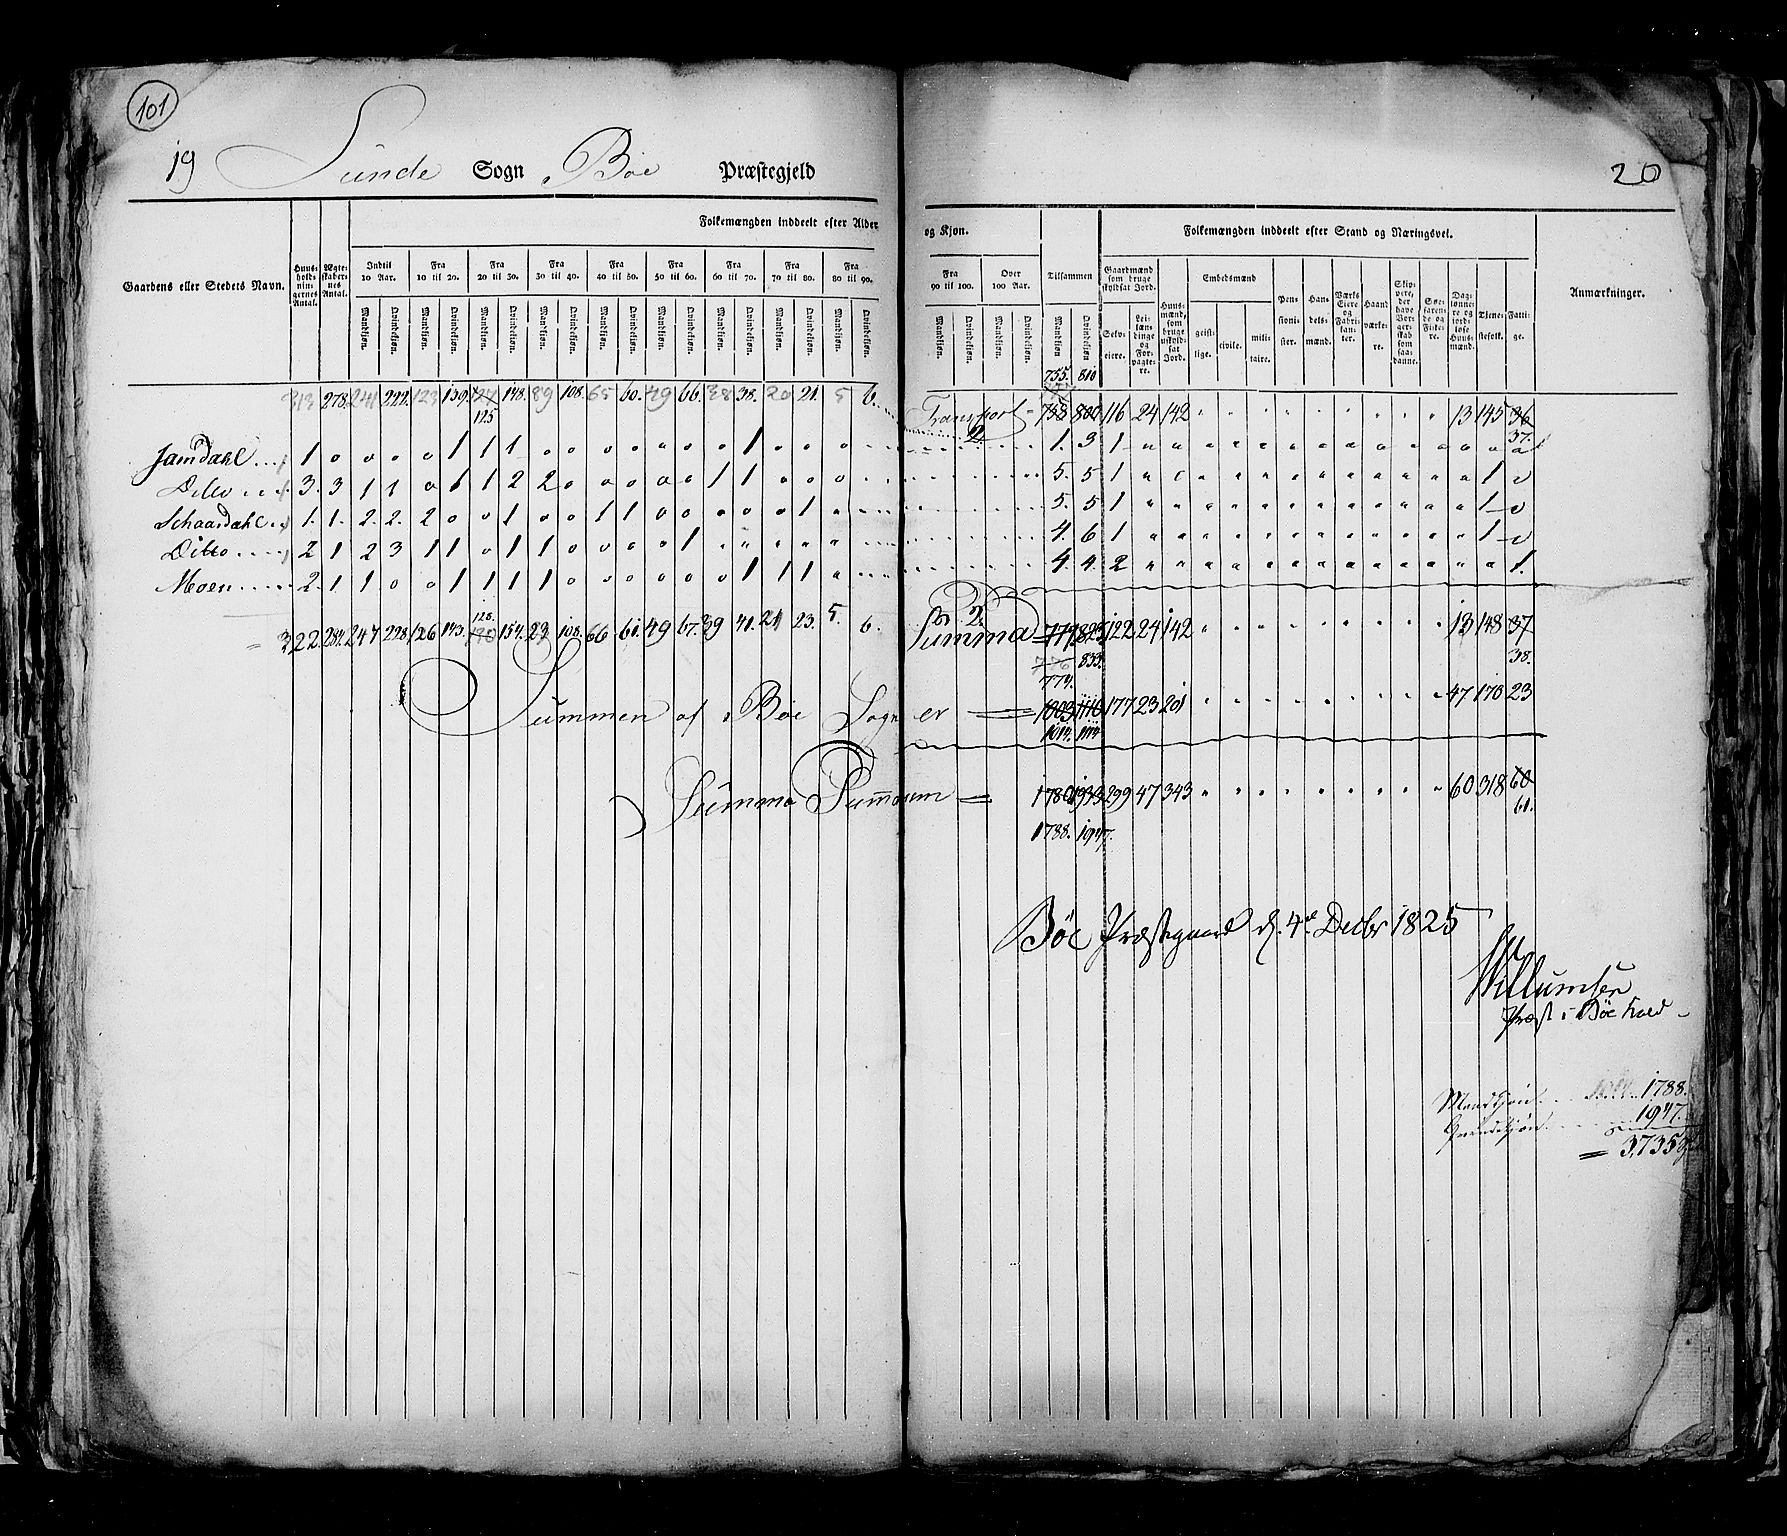 101
19 Lunde Sogn Böe Præstegjeld 20
Gaardens eller Stedets Navn. Huusholdningernes Antal. Ægteskabernes Antal. Folkemængden inddeelt efter Alder og Kjøn. Tilsammen Folkemængden inddeelt efter Stand og Næringsvei. Anmærkninger.
Indtil 10 Aar. Fra 10 til 20. Fra 20 til 30. Fra 30 til 40. Fra 40 til 50. Fra 50 til 60. Fra 60 til 70. Fra 70 til 80. Fra 80 til 90. Fra 90 til 100. Over 100 Aar.
Gaardmænd som bruge skyldsat Jord. Selveiere. Leilændinge og Forpagtere. Huusmænd, som bruge uskyldsat Jord. Embedsmænd geistlige. civile. militaire. Pensionister. Handelsmænd. Værks Eiere og Fabrikanter. Haandværkere. Skippere, der have Borgerskab som saadanne. Søefarende og Fiskere. Daglønnere og jordløse Huusmænd. Tjenestefolk. Fattige.
Mandkjøn. Qvindekjøn. Mandkjøn. Qvindekjøn. Mandkjøn. Qvindekjøn. Mandkjøn. Qvindekjøn. Mandkjøn. Qvindekjøn. Mandkjøn. Qvindekjøn. Mandkjøn. Qvindekjøn. Mandkjøn. Qvindekjøn. Mandkjøn. Qvindekjøn. Mandkjøn. Qvindekjøn. Mandkjøn. Qvindekjøn. Mandkjøn Qvindekjøn
755. 810
313 278 241 222. 123 139. 148. 89 108. 65 60. 49 66. 38 38. 20 21. 5 6. Transport 116 24 142 13 145 36
125 37.
1 0 0 0 0 1 1 1 0 0 0 0 0 0 1 0 0 0 1. 3 1
Ditto 3. 3 1 1 0 1 1 2 2 0 0 0 0 0 1 1 0 0 0 5. 5 1 1
1. 1. 2. 2. 2 0 0 1 0 0 1 1 0 0 0 0 0 1 5. 5 1 1
Ditto 2 1 2 3 1 1 0 1 1 0 0 0 0 1 4. 6 1 1
Moen 2. 1 1 0 0 1 1 1 1 0 0 0 0 0 0 1 1 1 4 4. 2 1.
128.
322. 284. 247 228. 126 143. 154. 108. 66 61. 49 67. 39 41. 21 23. 5. 6. Summa 122 24 142 13 148 37
833. 38.
774.
Summen af Böe Sogn er = 177 23 201 47 170 23
1014. 1114.
Summa Summarum = 1780 1933 299 47 343 60 318 60
61.
1788. 1947.
Böe Præstegaard d. 4de Decbr 1825
Willumsen
Præst i Böe
Mandkjön 1788.
Qvindekjön 1947.
= 3,735